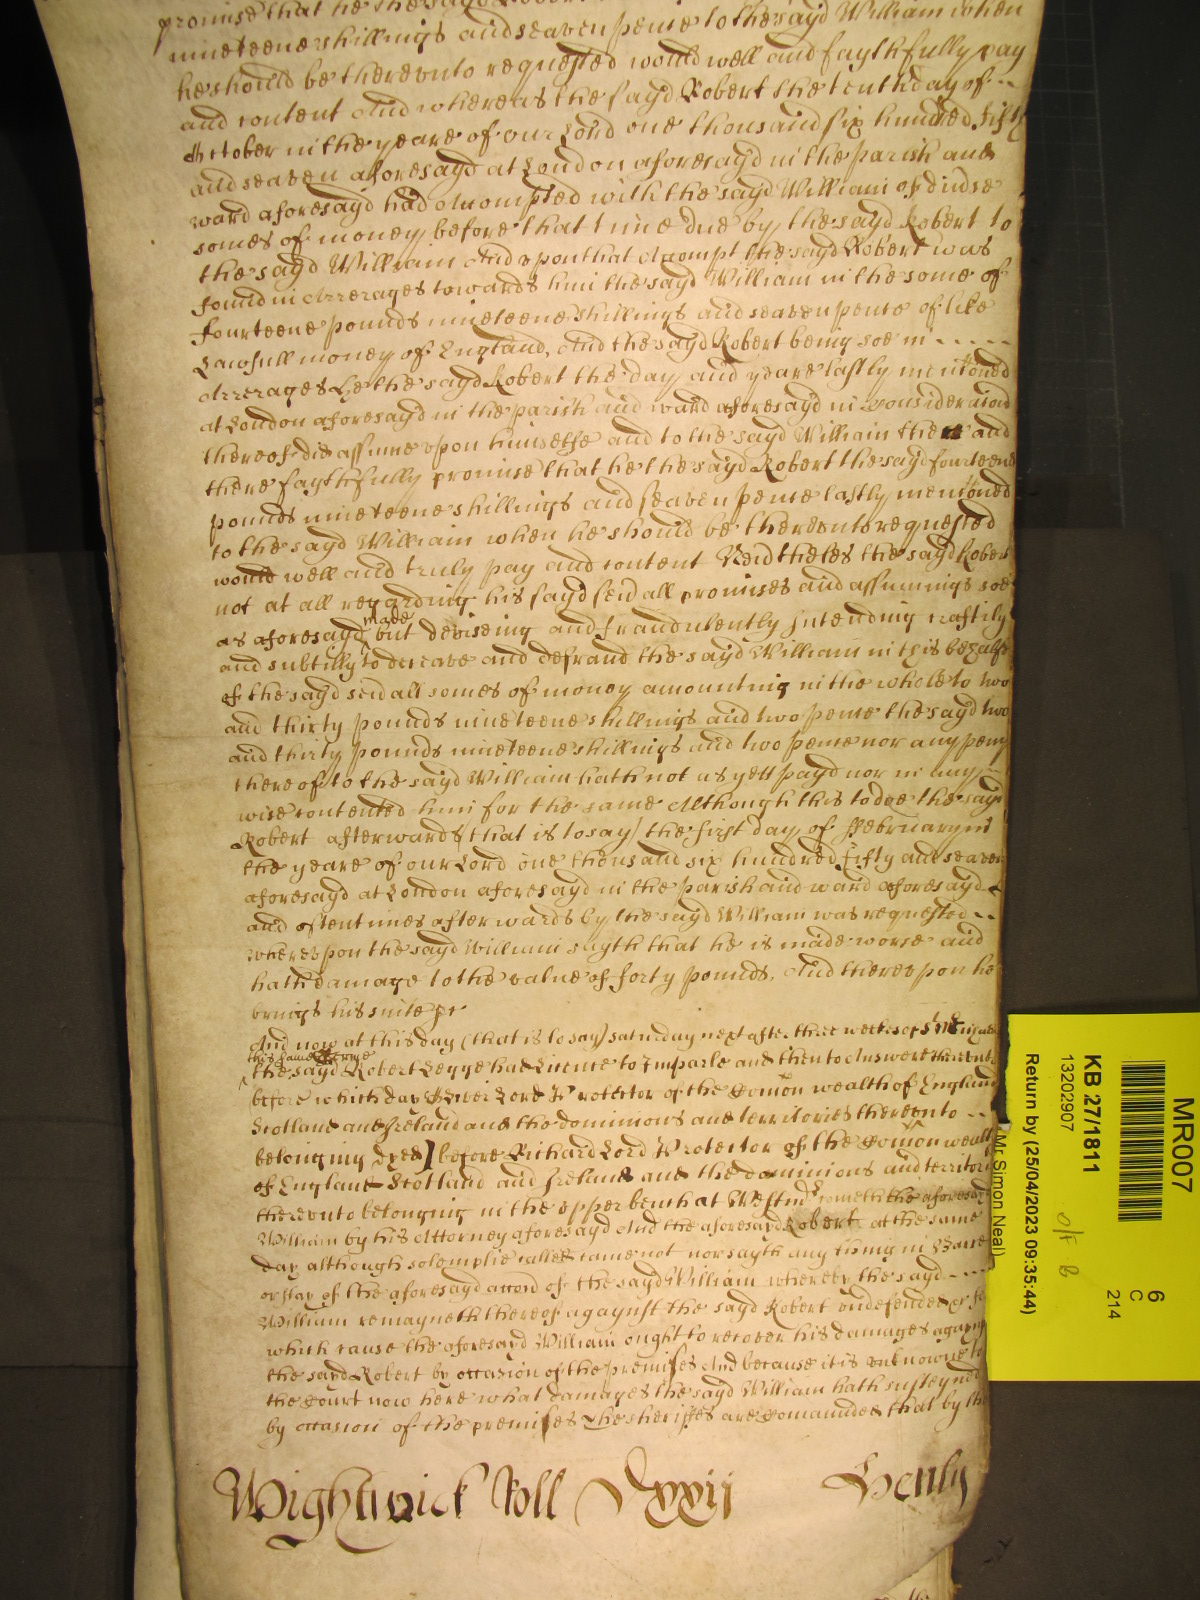 promise that he the sayd Robert
nineteene shillings and seaven pence to the sayd William when
he should be therevnto requested would well and faythfully pay
and content And whereas the sayd Robert the tenth day of --
October in the yeare of our Lord one thousand six hundred fifty
and seaven aforesayd at London aforesayd in the parish and
ward aforesayd had Accompted with the sayd William of diverse
somes of money before that time due by the sayd Robert to
the sayd William And vpon that Accompt the sayd Robert was
found in Arrerages towards him the sayd William in the some of
fourteene pounds nineteene shillings and seaven pence of like
Lawfull money of England, And the sayd Robert being soe in - - - - -
Arrerages he the sayd Robert the day and yeare lastly mentioned
at London aforesayd in the parish and ward aforesayd in Consideration
thereof did assume vpon himselfe and to the sayd William then and
there faythfully promise that he the sayd Robert the sayd fourteene
pounds nineteene shillings and seaven pence lastly mentioned
to the sayd William when he should be therevnto requested
would well and truly pay and content Neverthelesse the sayd Robert
not at all regarding his sayd severall promises and assumings soe
as aforesayd made but deviseing and fraudulently intending craftily
and subtilly to deceave and defraud the sayd William in this behalfe
of the sayd severall somes of money amounting in the whole to two
and thirty pounds nineteene shillings and two pence the sayd two
and thirty pounds nineteene shillings and two pence nor any peny
thereof to the sayd William hath not as yett payd nor in any
wise contented him for the same Although this to doe the sayd
Robert afterwards (that is to say) the first day of ffebruary in
the yeare of our Lord one thousand six hundred fifty and seaven
aforesayd at London aforesayd in the parish and ward aforesayd
and oftentimes afterwards by the sayd William was requested --
wherevpon the sayd William sayth that he is made worse and
hath damage to the value of forty pounds. And therevpon he
brings his suite &c
And now at this day (that is to say) Saturday next after three weekes of St Michael
this same Terme
the sayd Robert Legge had Licence to Imparle and then to Answere therevnto
before which day Oliver Lord Protector of the Comon wealth of England
Scotland and Ireland and the dominions and territories therevnto --
belonging dyed] before Richard Lord Protector of the Comon wealth
of England Scotland and Ireland and the dominions and territories
therevnto belonging in the vpper bench at Westm cometh the aforesayd
William by his Attorney aforesayd And the aforesayd Robert at the same
day although solemplie called came not nor sayth any thing in Barre
or stay of the aforesayd accon of the sayd William whereby the sayd - - - -
William remayneth thereof agaynst the sayd Robert vndefended for
which cause the aforesayd William ought to recover his damages agaynst
the sayd Robert by occasion of the premises And because it is vnknowne to
the Court now here what damages the sayd William hath susteyned
by occasion of the premises The sheriffes are Comaunded that by the
Wightwick Roll Dxxij Henly
MR007
KB 27/1811
13202907
Return by (25/04/2023 09:35:44)
Mr Simon Neal
6
C
214